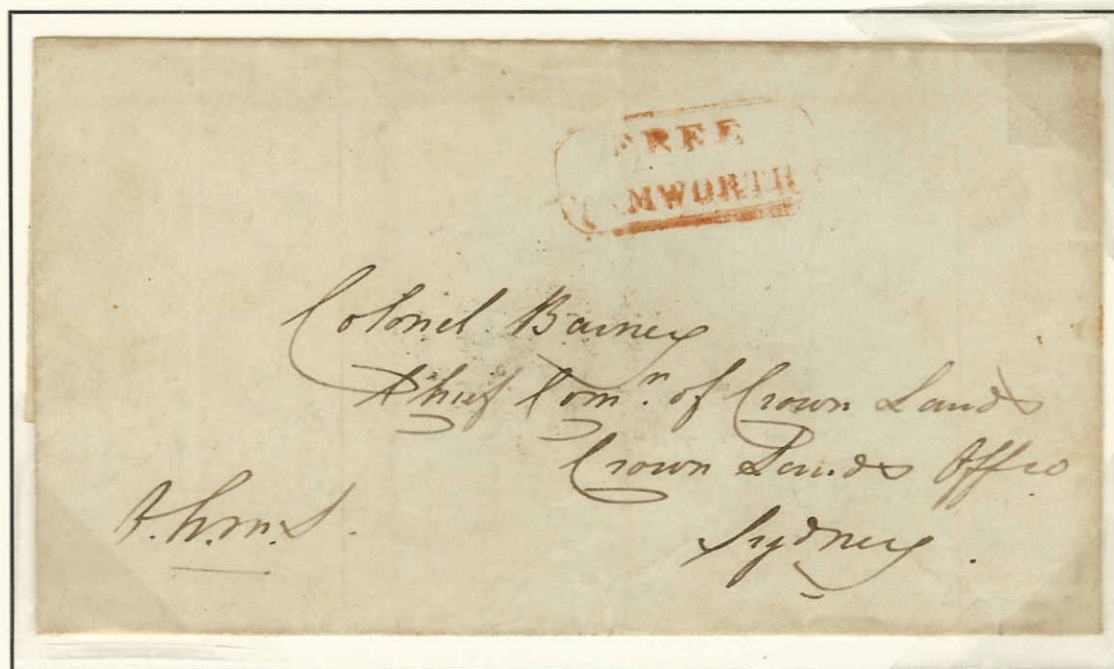 FREE
TAMWORTH
Colonel Barney
Chief Comn. of Crown Lands
Crown Lands Office
O.H.M.S.
Sydney.